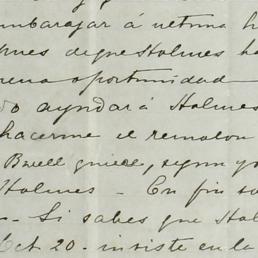 embarazar á ultima h
pues de que Holmes ha
rena oportunidad
do ayudar á Holmes
hacerme el remolon
Buell quiere, segun yo
Holmes - En fin
- Si sabes que Hol
Oct 20 - insiste en la